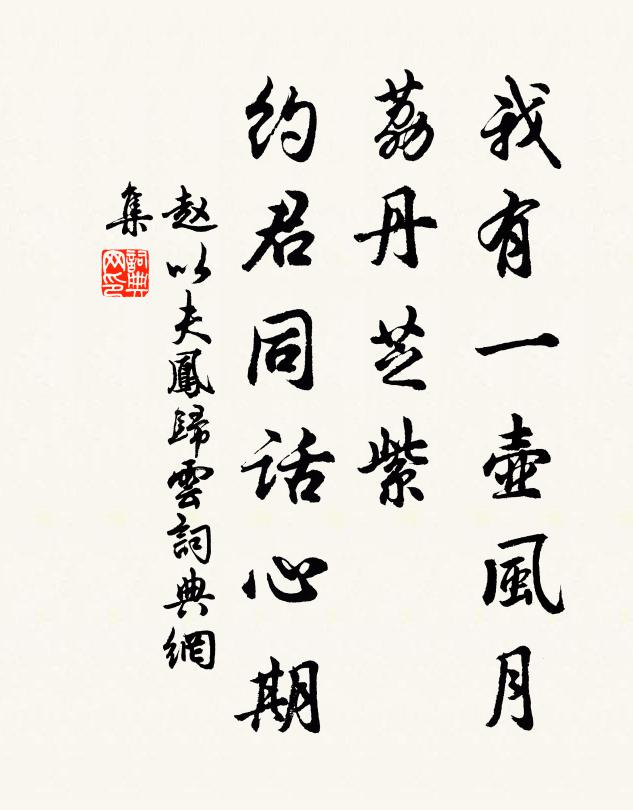 我有一壶風月
荔丹芝紫
约君同话心期
赵以夫鳳歸雲詞典網
集
詞典网印